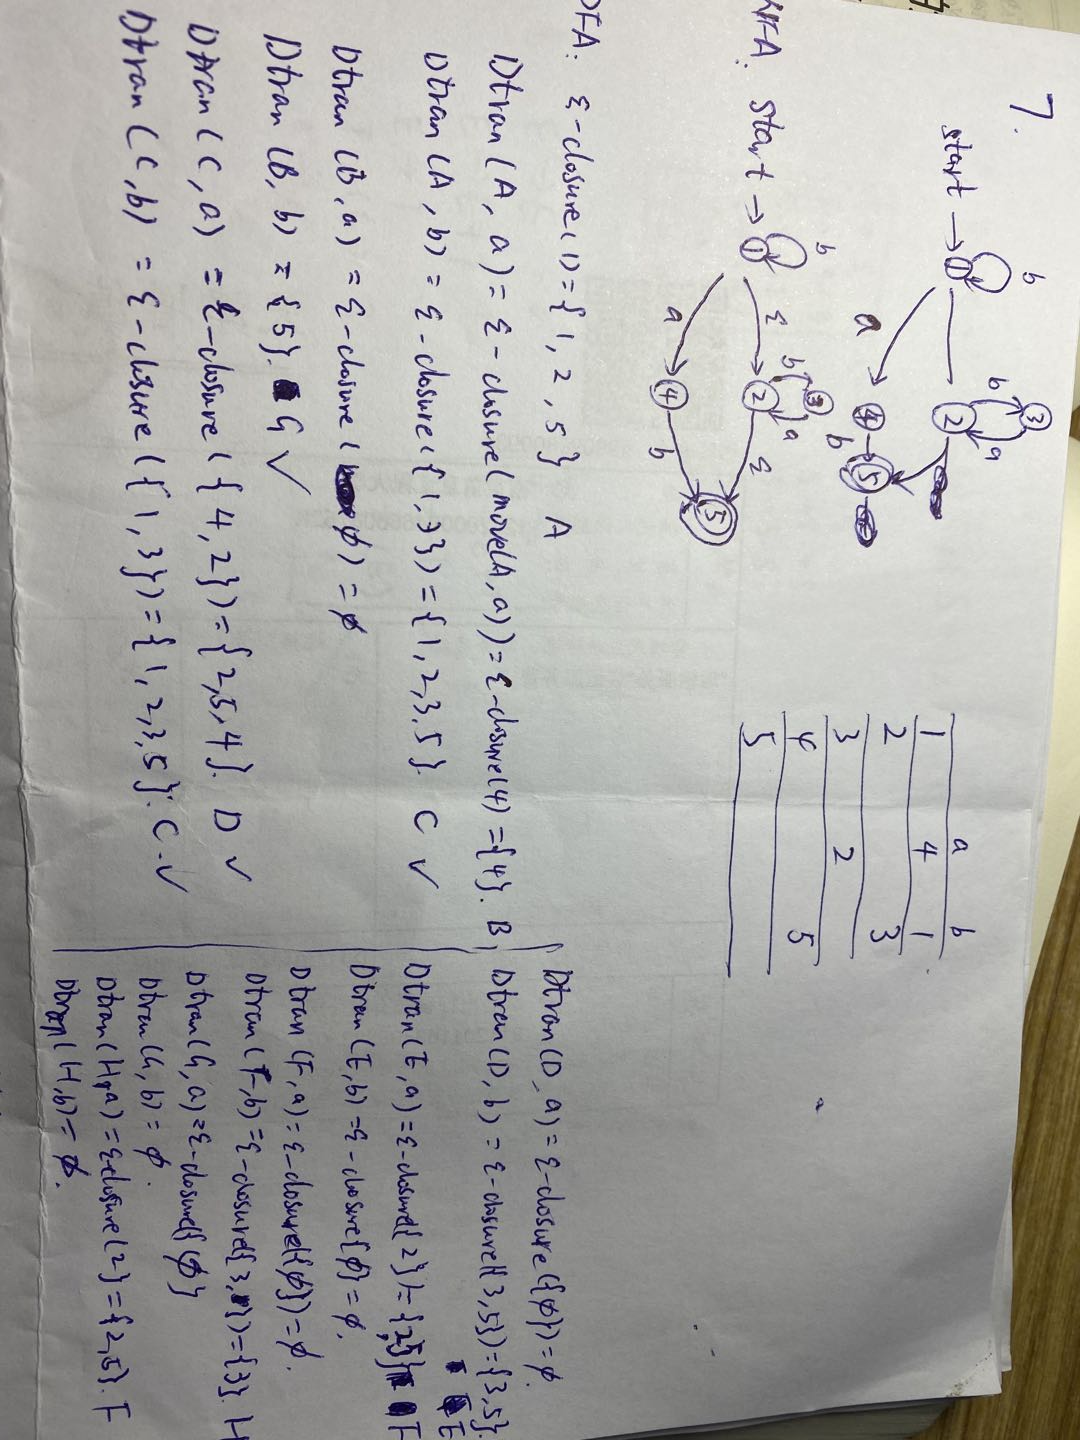 7.
start → 1 b
a b 2 3 a
4 b 5
a b
1 4 1
2 3
3 2
4 5
5
NFA: start → 1 b
ε 2 b 3 a ε
a 4 b 5
DFA: ε-closure(1)={1,2,5} A
Dtran(A,a)=ε-closure(move(A,a))=ε-closure(4)={4}. B
Dtran(A,b)=ε-closure({1,3})={1,2,3,5}. C ✓
Dtran(B,a)=ε-closure(ϕ)=ϕ
Dtran(B,b)={5}. G ✓
Dtran(C,a)=ε-closure({4,2})={2,5,4}. D ✓
Dtran(C,b)=ε-closure({1,3})={1,2,3,5}. C. ✓
Dtran(D,a)=ε-closure({ϕ})=ϕ.
Dtran(D,b)=ε-closure({3,5})={3,5}. E
Dtran(E,a)=ε-closure({2})={2,5} F
Dtran(E,b)=ε-closure{ϕ}=ϕ.
Dtran(F,a)=ε-closure({ϕ})=ϕ.
Dtran(F,b)=ε-closure({3})={3}. H
Dtran(G,a)=ε-closure{ϕ}
Dtran(G,b)=ϕ.
Dtran(H,a)=ε-closure(2)={2,5}. F
Dtran(H,b)=ϕ.